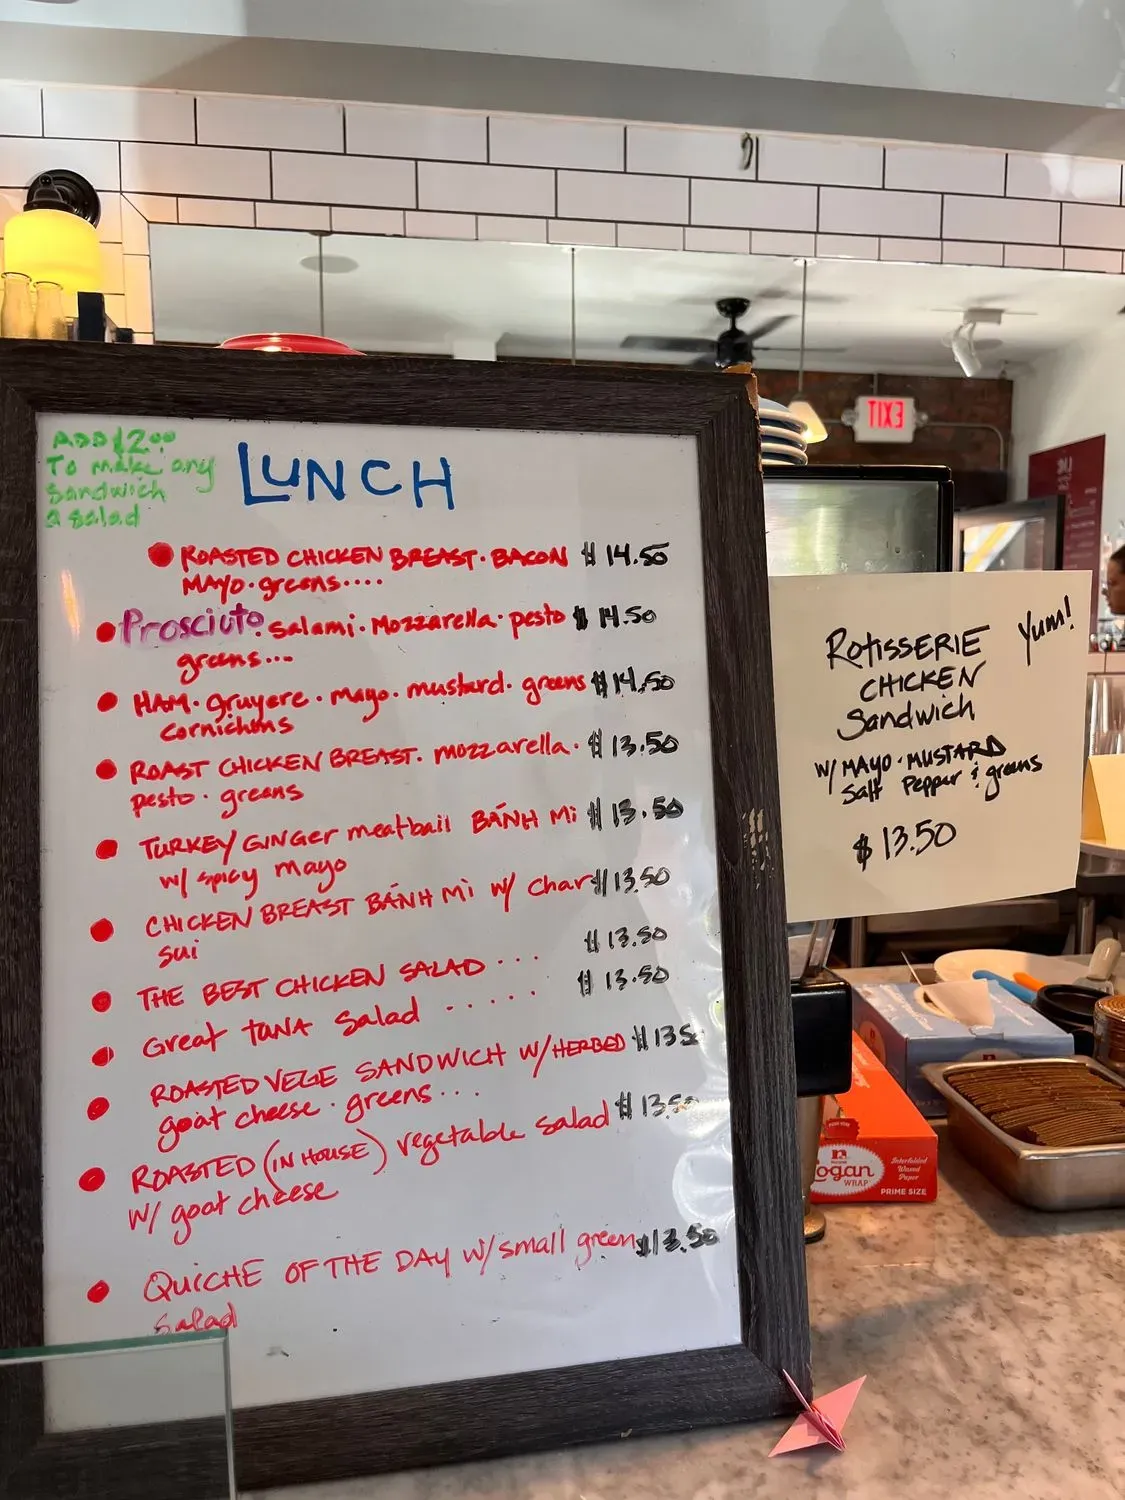 ADD $2.00
To make any
Sandwich
a salad
LUNCH
ROASTED CHICKEN BREAST · BACON $14.50
MAYO · greens....
Prosciuto · Salami · Mozzarella · pesto $14.50
greens...
HAM · gruyere · mayo · mustard · greens $14.50
cornichons
ROAST CHICKEN BREAST · mozzarella · $13.50
pesto · greens
TURKEY GINGER meatball BÁNH Mi $13.50
w/ spicy mayo
CHICKEN BREAST BÁNH Mi w/ Char $13.50
sui
THE BEST CHICKEN SALAD ... $13.50
Great tuna Salad ..... $13.50
ROASTED VEGE SANDWICH W/HERBED $135
goat cheese · greens...
ROASTED (IN HOUSE) vegetable salad $13.50
w/ goat cheese
QUICHE OF THE DAY w/small green $13.50
salad
Yum!
ROTISSERIE
CHICKEN
Sandwich
w/ MAYO · MUSTARD
Salt Pepper & greens
$13.50
EXIT
ogan
WRAP
Interfolded
Waxed
Paper
PRIME SIZE